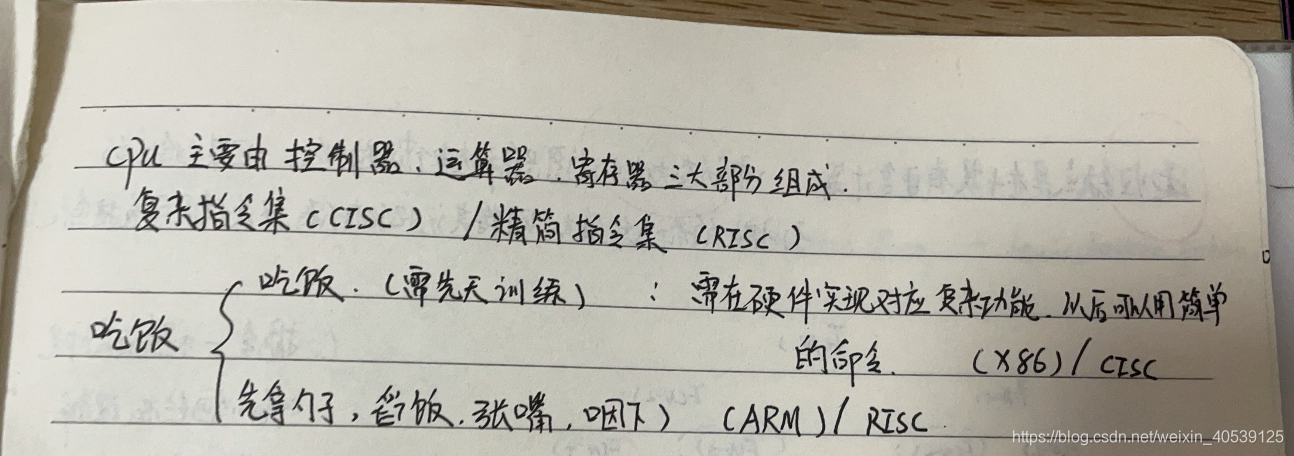 CPU 主要由 控制器、运算器、寄存器三大部分组成.
复杂指令集(CISC) /精简指令集 (RISC)
吃饭.(需先天训练) : 需在硬件实现对应复杂功能.以后可以用简单
吃饭
的命令. (X86)/CISC
先拿勺子,舀饭,张嘴,咽下) (ARM)/RISC.
https://blog.csdn.net/weixin_40539125